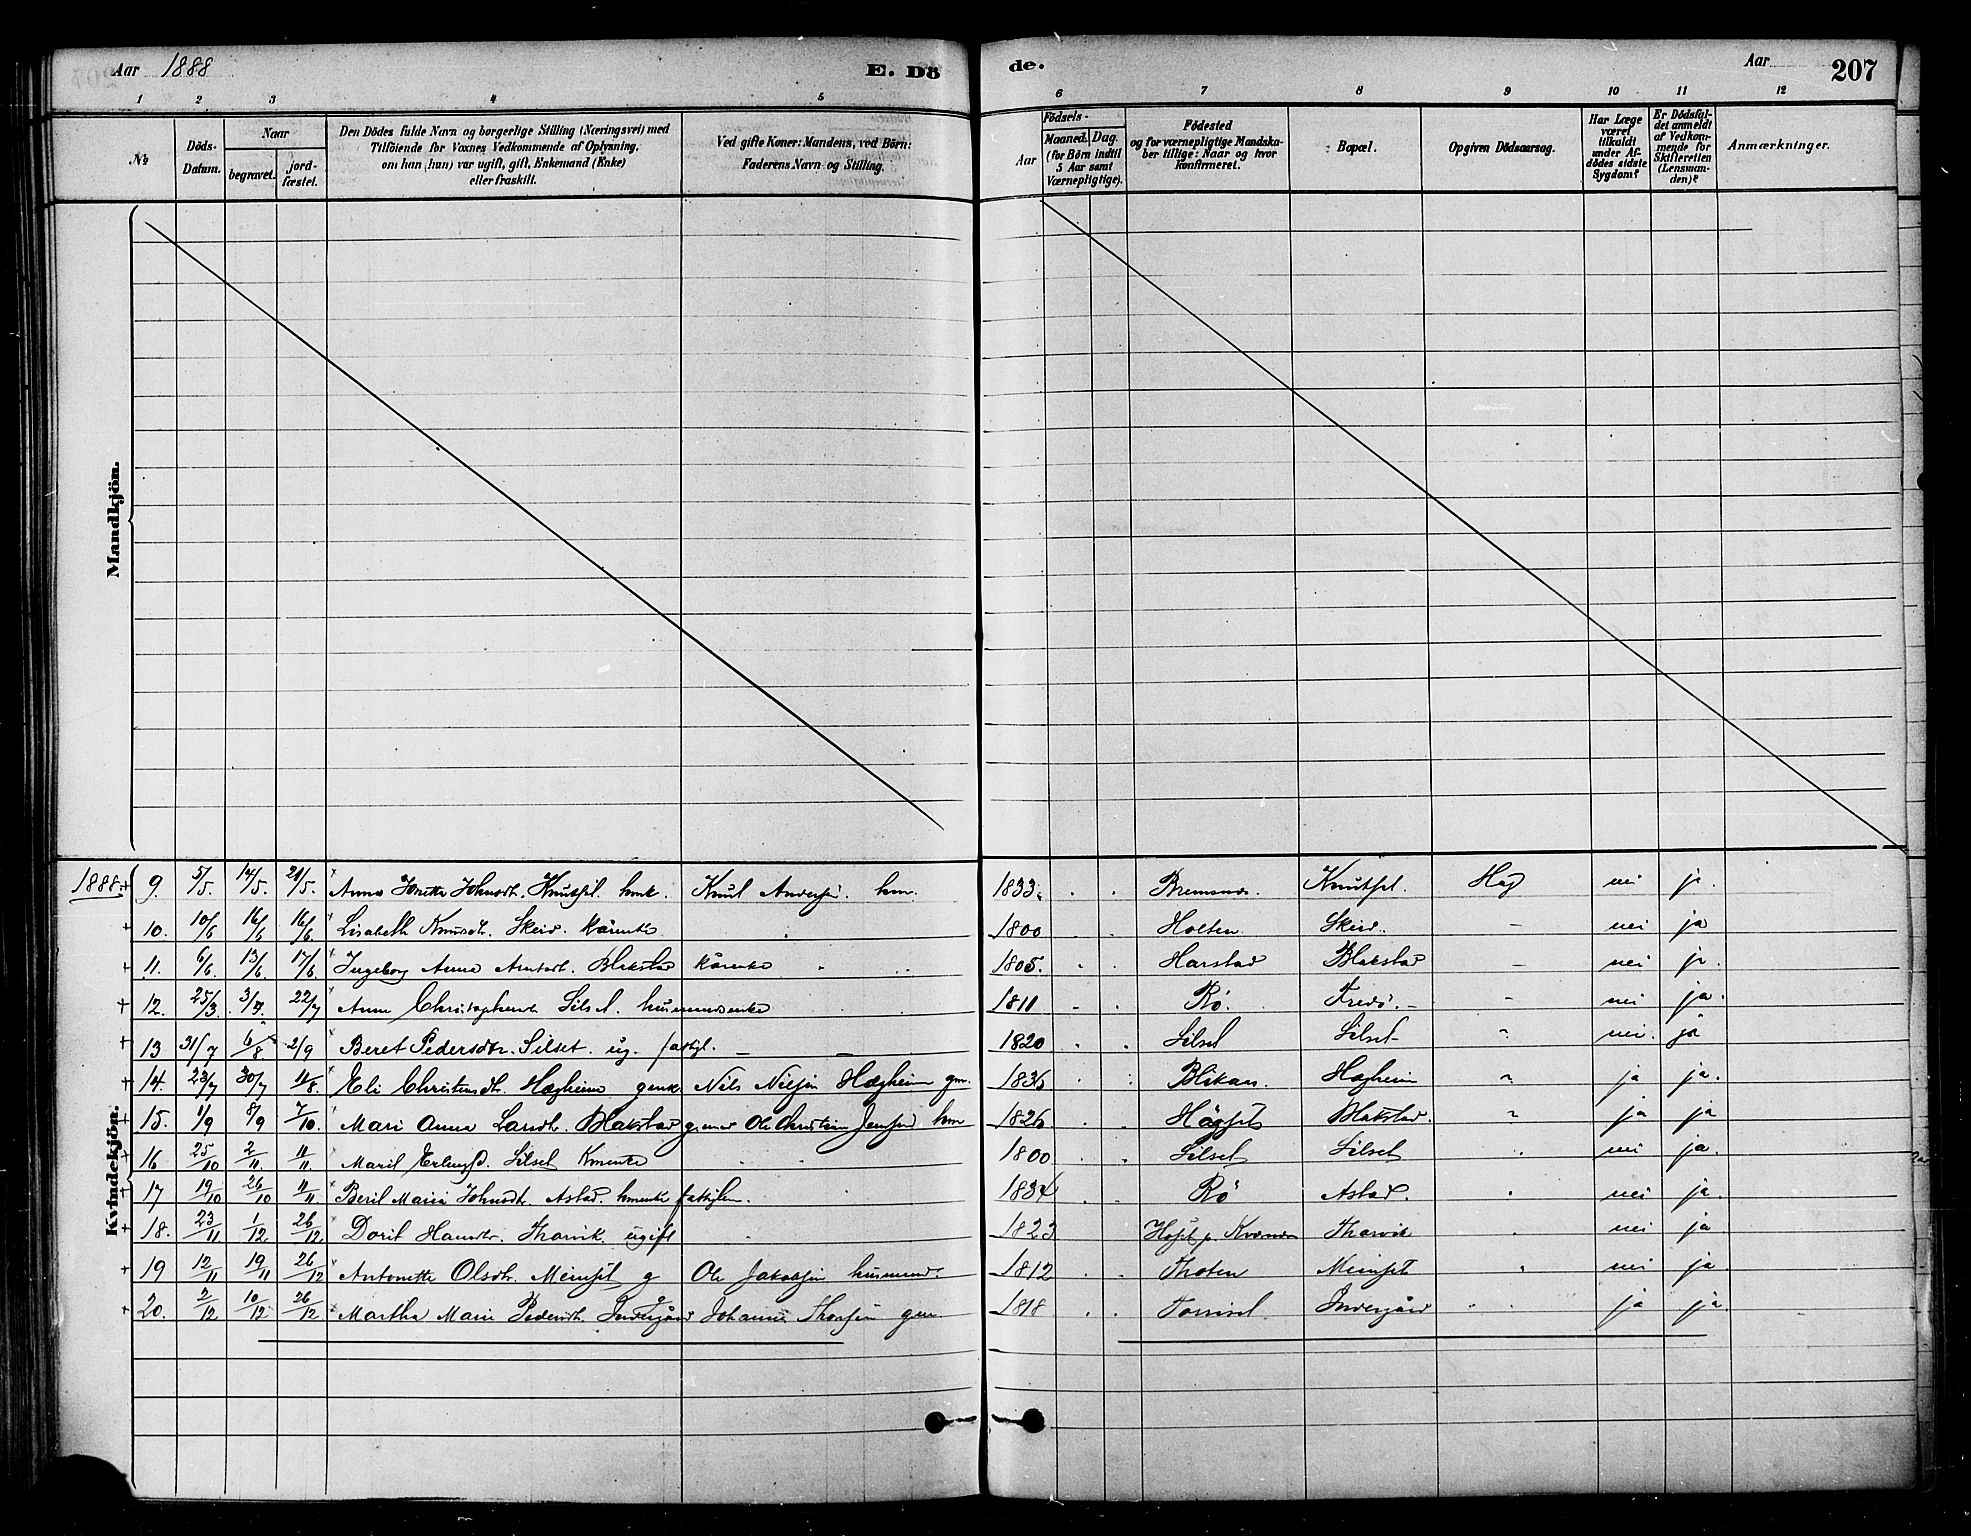 Aar 1888
E. Dö
de.
Aar
207
1 2 3 4 5 6 7 8 9 10 11 12
No
Döds-Datum.
Naar
begravet.
jord-fæstet.
Den Dödes fulde Navn og borgerlige Stilling (Næringsvei) med
Tilföiende for Voxnes Vedkommende af Oplysning,
om han (hun) var ugift, gift, Enkemand (Enke)
eller fraskilt.
Ved gifte Koner: Mandens, ved Börn:
Faderens Navn og Stilling.
Födsels-
Aar
Maaned. Dag.
(for Börn indtil
5 Aar samt
Værnepligtige).
Födested
og for værnepligtige Mandska-
ber tillige: Naar og hvor
konfirmeret.
Bopæl.
Opgiven Dödsaarsag.
Har Læge
været
tilkaldt
under Af-
dödes sidste
Sygdom?
Er Dödsfal-
det anmeldt
af Vedkom-
mende for
Skifteretten
(Lensman-
den)?
Anmærkninger.
Mandkjön.
Kvindekjön.
1888. 9. 5/5 14/5. 21/5. Anna Johnsdt. Knutset. hmk. Knut Andersen hm. 1833. Bremsnes. Knutset. nei ja.
10. 10/6 16/6 16/6. Lisabeth Knusdt. Skeid. kårenke 1800 Holten. Skeid. — nei ja
11. 6/6. 13/6. 17/6 Ingeborg Anna Arntsdt. Blakstad kårenke 1805. Harstad Blakstad — nei ja.
12. 25/3. 22/7 Anne Silset. husmandsenke 1811 Rö. Fredö. — nei ja.
13 31/7 6/8 2/9 Beret Pedersdtr. Silset. ug. fattigl. — — 1820 Silset Silset " nei. ja
14. 23/7 30/7 Eli Christensdt. Hægheim gmk. Nils Nilsen Hægheim gm. 1836 Blikan. Hægheim " ja ja.
15. 1/9 8/9 7/10. Mari Anna Larsdt. Blakstad Ole Christian Jensen hm 1826 Blakstad. " ja ja
16 25/10 2/11. 11/11. Marit Silset Kmenke 1800 Silset Silset nei ja.
17 19/10 26/10 11/11 Berit Maria Johnsdt. Astad. hmenke fattiglem. 1834 Rö Astad. nei ja.
18. 23/11 1/12 26/12 Dorit Hansdtr. Thorvik ugift 1823 Thorvik nei ja.
19 12/11 19/11 26/12 Antonette Olsdt. Meinset g Ole Jakobsen husmand. 1812 Meinset nei ja.
20. 2/12 10/12 26/12 Martha Marie Pedersdt. Indergård Johannes Thorsen gm. 1818 Torviset Indergård ja ja.